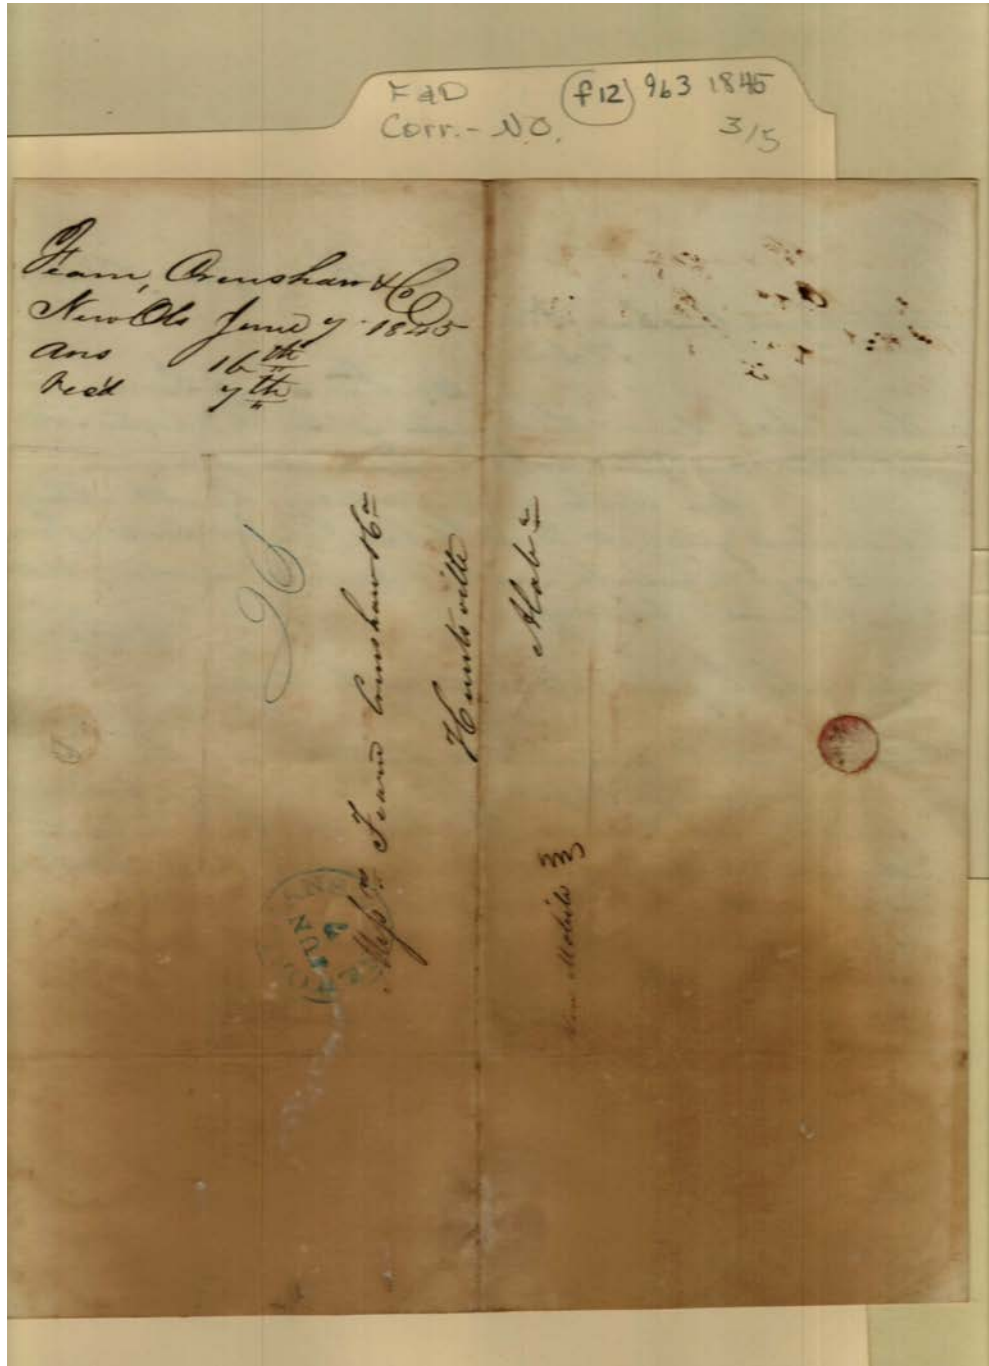 F&D (f12) 963 1845
Corr. - N.O. 3/5
Fearn, Crenshaw & Co
New Ols June 7 1845
Ans 16th
Recd 7th
26
Messrs Fearn Crenshaw & Co
Huntsville
Alaba
Via Mobile
JUN